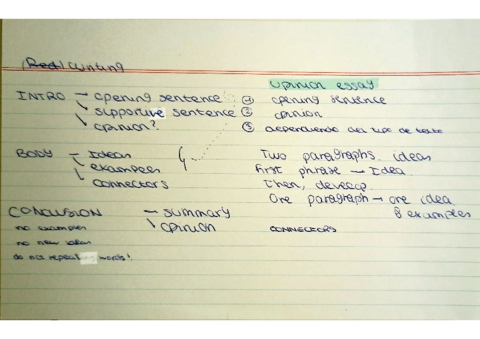 (Red) Writing
INTRO – opening sentence
supportive sentence
opinion?
BODY – Ideas
examples
connectors
CONCLUSION – summary
opinion
no examples
no new ideas
do not repeat words!
Opinion essay
① opening sentence
② opinion
③ dependiendo del tipo de texto
Two paragraphs ideas
First phrase – Idea
Then, develop
One paragraph → one idea
& examples
CONNECTORS